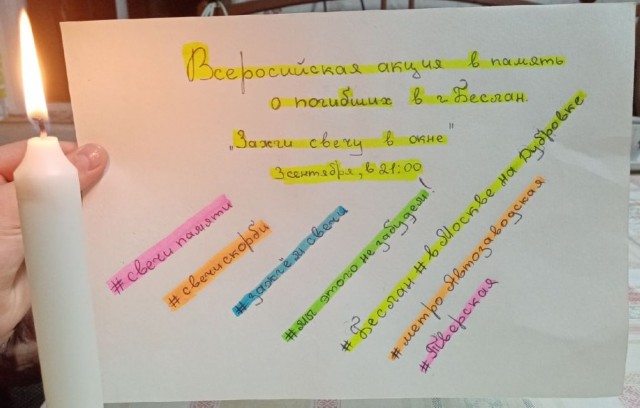 Всеросийская акция в память
о погибших в г. Беслан.
"Зажги свечу в окне"
3 сентября, в 21:00
#свечи памяти
#свечи скорби
#зажжём свечи
#мы этого не забудем!
#Беслан #в Москве на Дубровке
#метро Автозаводская
#Тверская